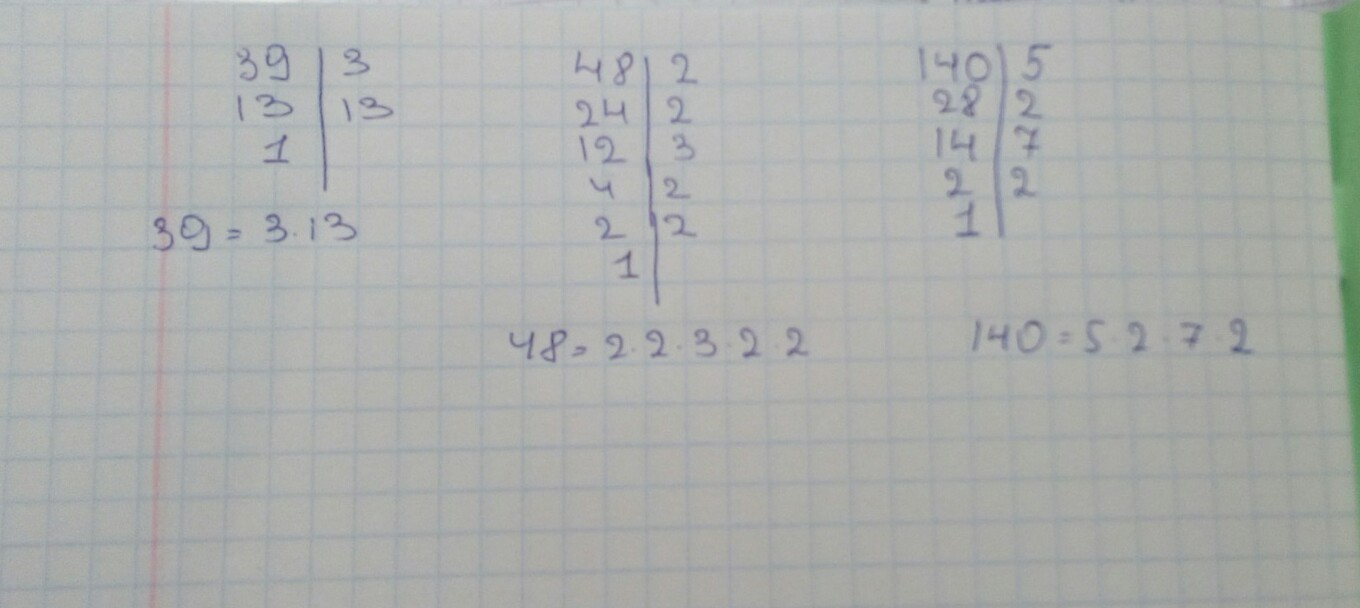 39 | 3
13 | 13
1 |
39 = 3 · 13
48 | 2
24 | 2
12 | 3
4 | 2
2 | 2
1 |
48 = 2 · 2 · 3 · 2 · 2
140 | 5
28 | 2
14 | 7
2 | 2
1 |
140 = 5 · 2 · 7 · 2